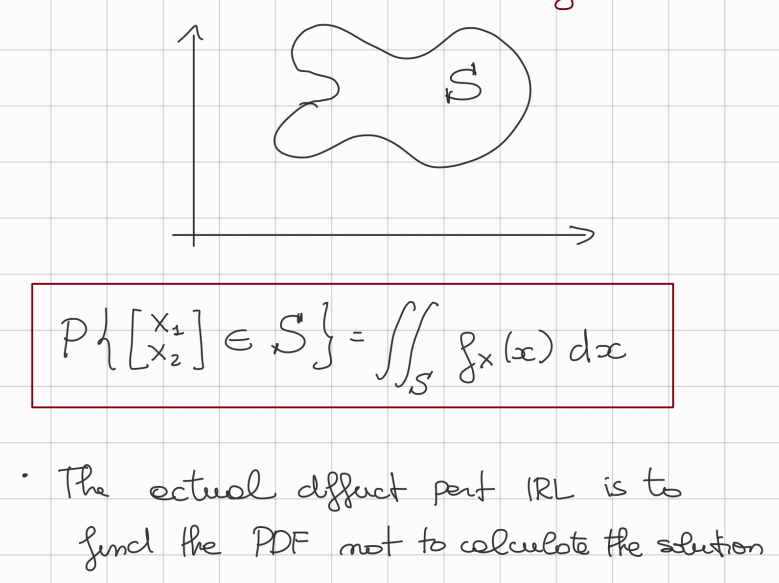 S
P{[X₁ X₂] ∈ S} = ∬_S f_X(x) dx
· The actual diffuct part IRL is to
find the PDF not to calculate the solution